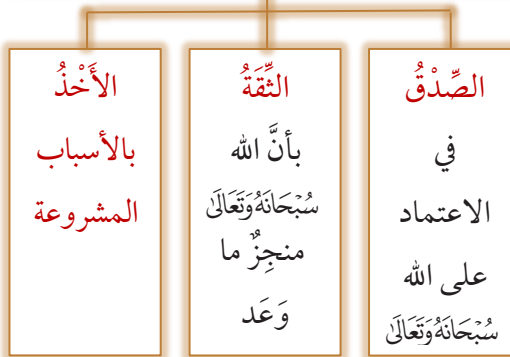 الصِّدْقُ
في
الاعتماد
على الله
سُبْحَانَهُ وَتَعَالَىٰ
الثِّقَةُ
بأنَّ الله
سُبْحَانَهُ وَتَعَالَىٰ
منجِزٌ ما
وَعَد
الأَخْذُ
بالأسباب
المشروعة